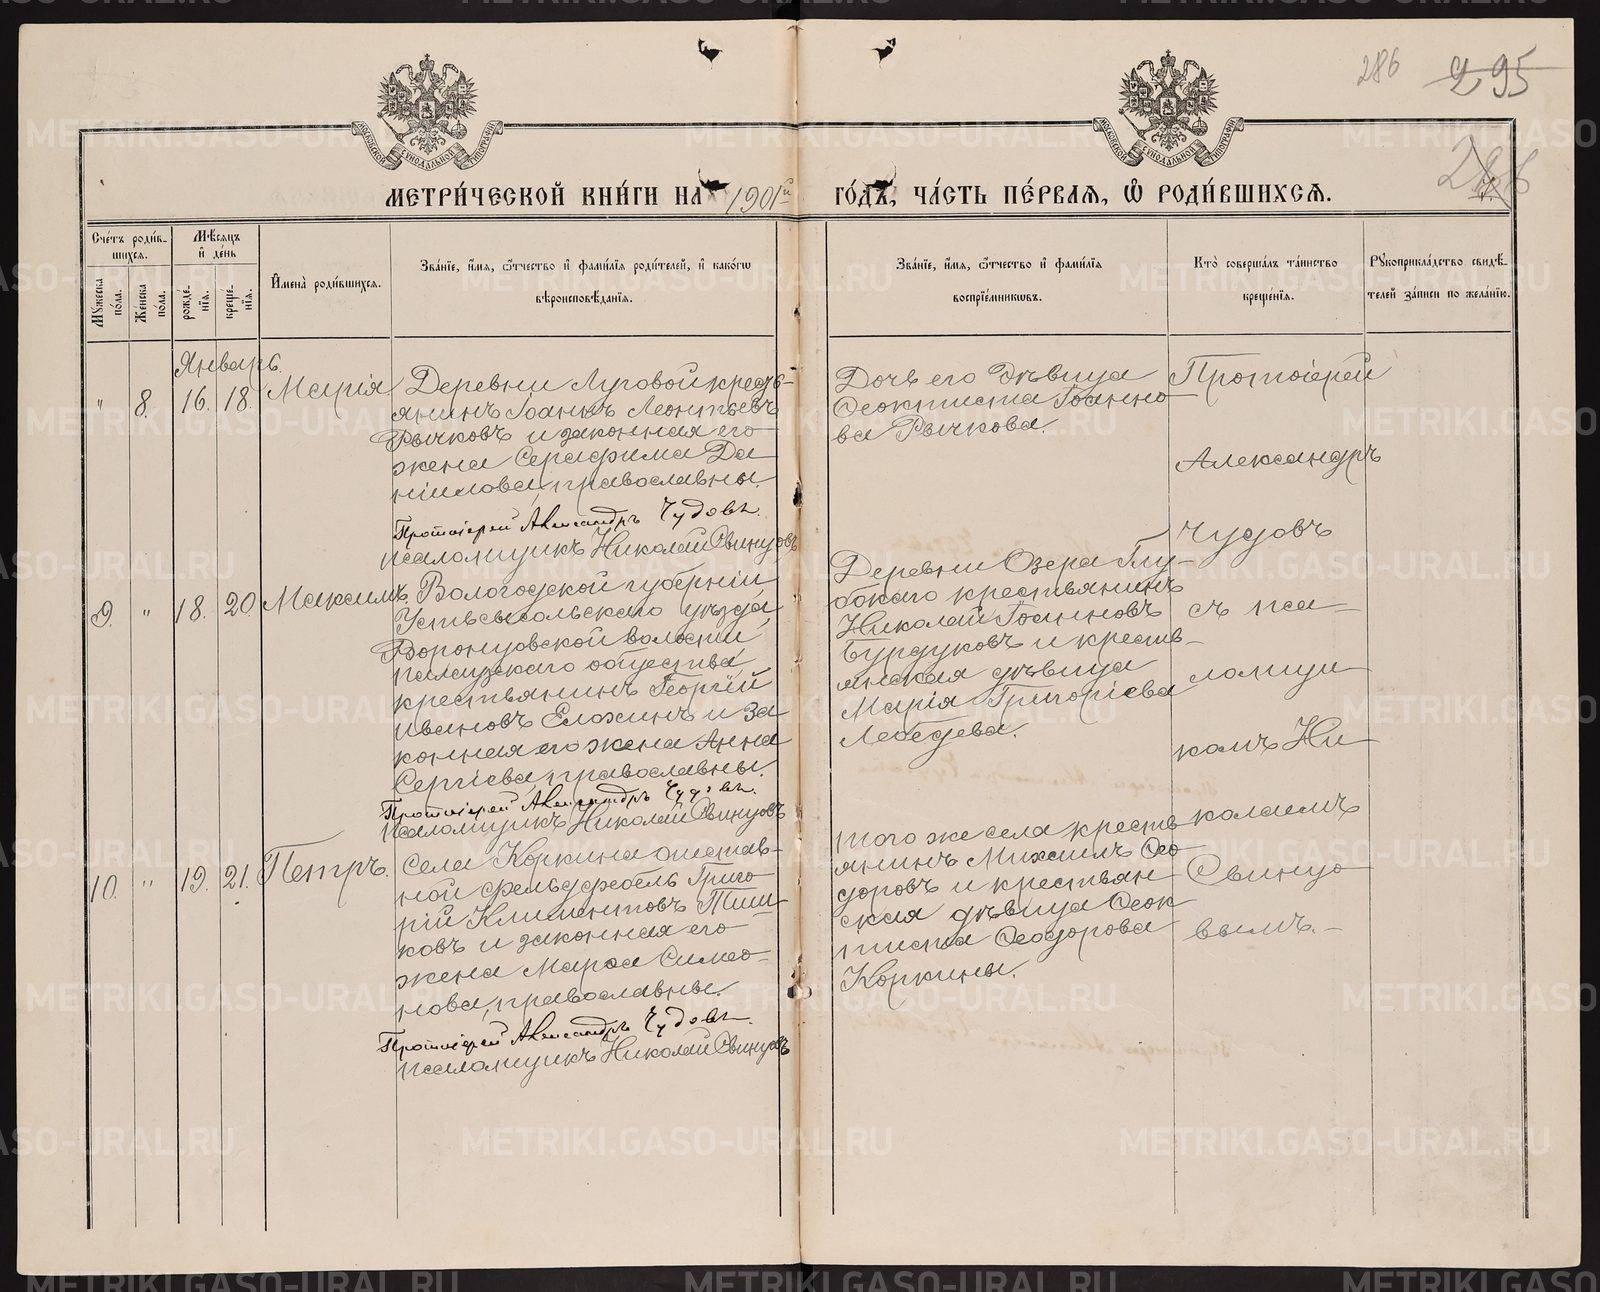 286 295
286
МОСКОВСКОЙ СУНОДАЛЬНОЙ ТИПОГРАФІИ
МОСКОВСКОЙ СУНОДАЛЬНОЙ ТИПОГРАФІИ
МЕТРИ́ЧЕСКОЙ КНИ́ГИ НА 1901й ГО́ДЪ, ЧА́СТЬ ПЕ́РВАЯ, Ѡ РОДИ́ВШИХСЯ.
Сче́тъ роди́в-
шихся.
Мꙋжеска по́ла.
Же́нска по́ла.
Мѣсяцъ и де́нь
рожде́-нїя.
креще́-нїя.
Имена̀ роди́вшихся.
Зва́нїе, и́мя, ѻ҆́тчество и фами́лїя роди́телей, и како́гѡ
вѣроисповѣ́данїя.
Зва́нїе, и́мя, ѻ҆́тчество и фами́лїя
воспрїе́мникѡвъ.
Кто̀ соверша́лъ та́инство
креще́нїя.
Рꙋкоприкла́дство свидѣ́-
телей за́писи по жела́нїю.
Январь.
" 8. 16. 18. Марія
Деревни Луговой кресть-
янинъ Іоаннъ Леонтьевъ
Рычковъ и законная его
жена Серафима Да
ніилова, православны.
Протоіерей Александръ Чудовъ.
псаломщикъ Николай Свинцовъ
Дочь его дѣвица
Ѳеоктиста Іоанно
ва Рычкова.
Протоіерей
Александръ
Чудовъ
съ пса-
ломщи
комъ Ни
колаемъ
Свинцо
вымъ.-
9. " 18. 20. Максимъ
Вологодской губерніи
Устьсысольскаго уѣзда,
Воронцовской волости,
крестьянинъ Георгій
Ивановъ Еложинъ и за
конная его жена Анна
Сергіева, православны.
Протоіерей Александръ Чудовъ.
псаломщикъ Николай Свинцовъ
Деревни Озера Глу-
бокаго крестьянинъ
Николай Іоанновъ
Бурдуковъ и кресть-
янская дѣвица
Марія Григоріева
Лебедева.
10. " 19. 21. Петръ.
Села Коркина отстав-
ной фельдфебель Григо
рій Климентовъ Тиш-
ковъ и законная его
жена Марѳа Симео-
нова, православны.
Протоіерей Александръ Чудовъ.
псаломщикъ Николай Свинцовъ
того же села кресть
янинъ Михаилъ Ѳео
доровъ и крестьян-
ская дѣвица Ѳеок
тиста Ѳеодорова
Коркины.
METRIKI.GASO-URAL.RU